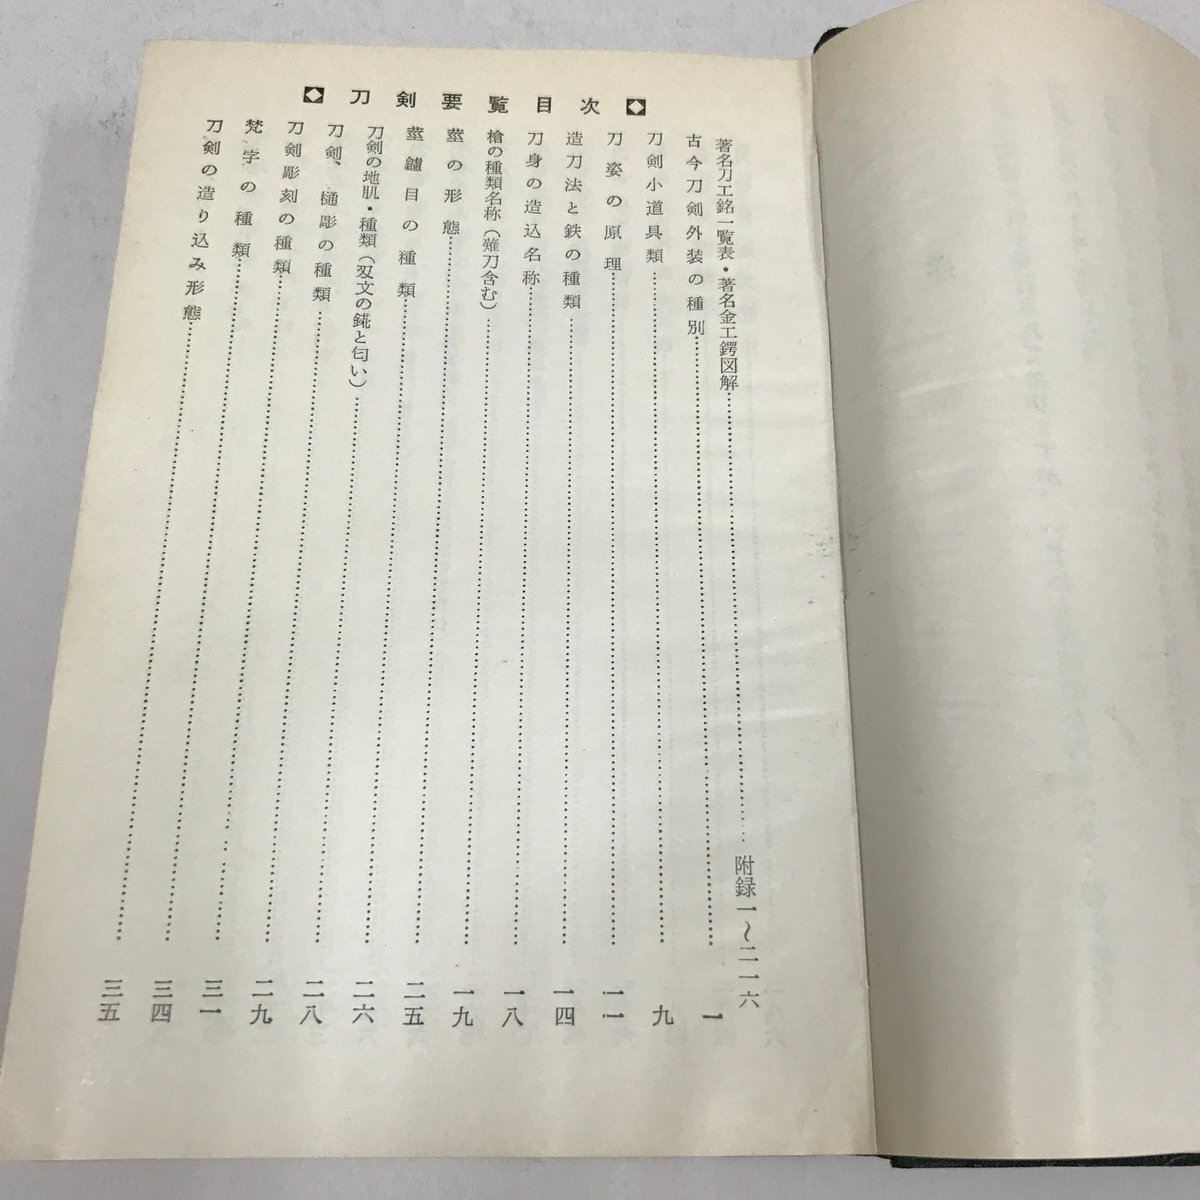 刀剣要覧目次
著名刀工銘一覧表・著名金工鍔図解……附録一〜二一六
古今刀剣外装の種別……一
刀剣小道具類……九
刀姿の原理……一一
造刀法と鉄の種類……一四
刀身の造込名称……一八
槍の種類名称（薙刀含む）……一九
莖の形態……二五
莖鑢目の種類……二六
刀剣の地肌・種類（刄文の錵と匂い）……二八
刀剣、樋彫の種類……二九
刀剣彫刻の種類……三一
梵字の種類……三四
刀剣の造り込み形態……三五